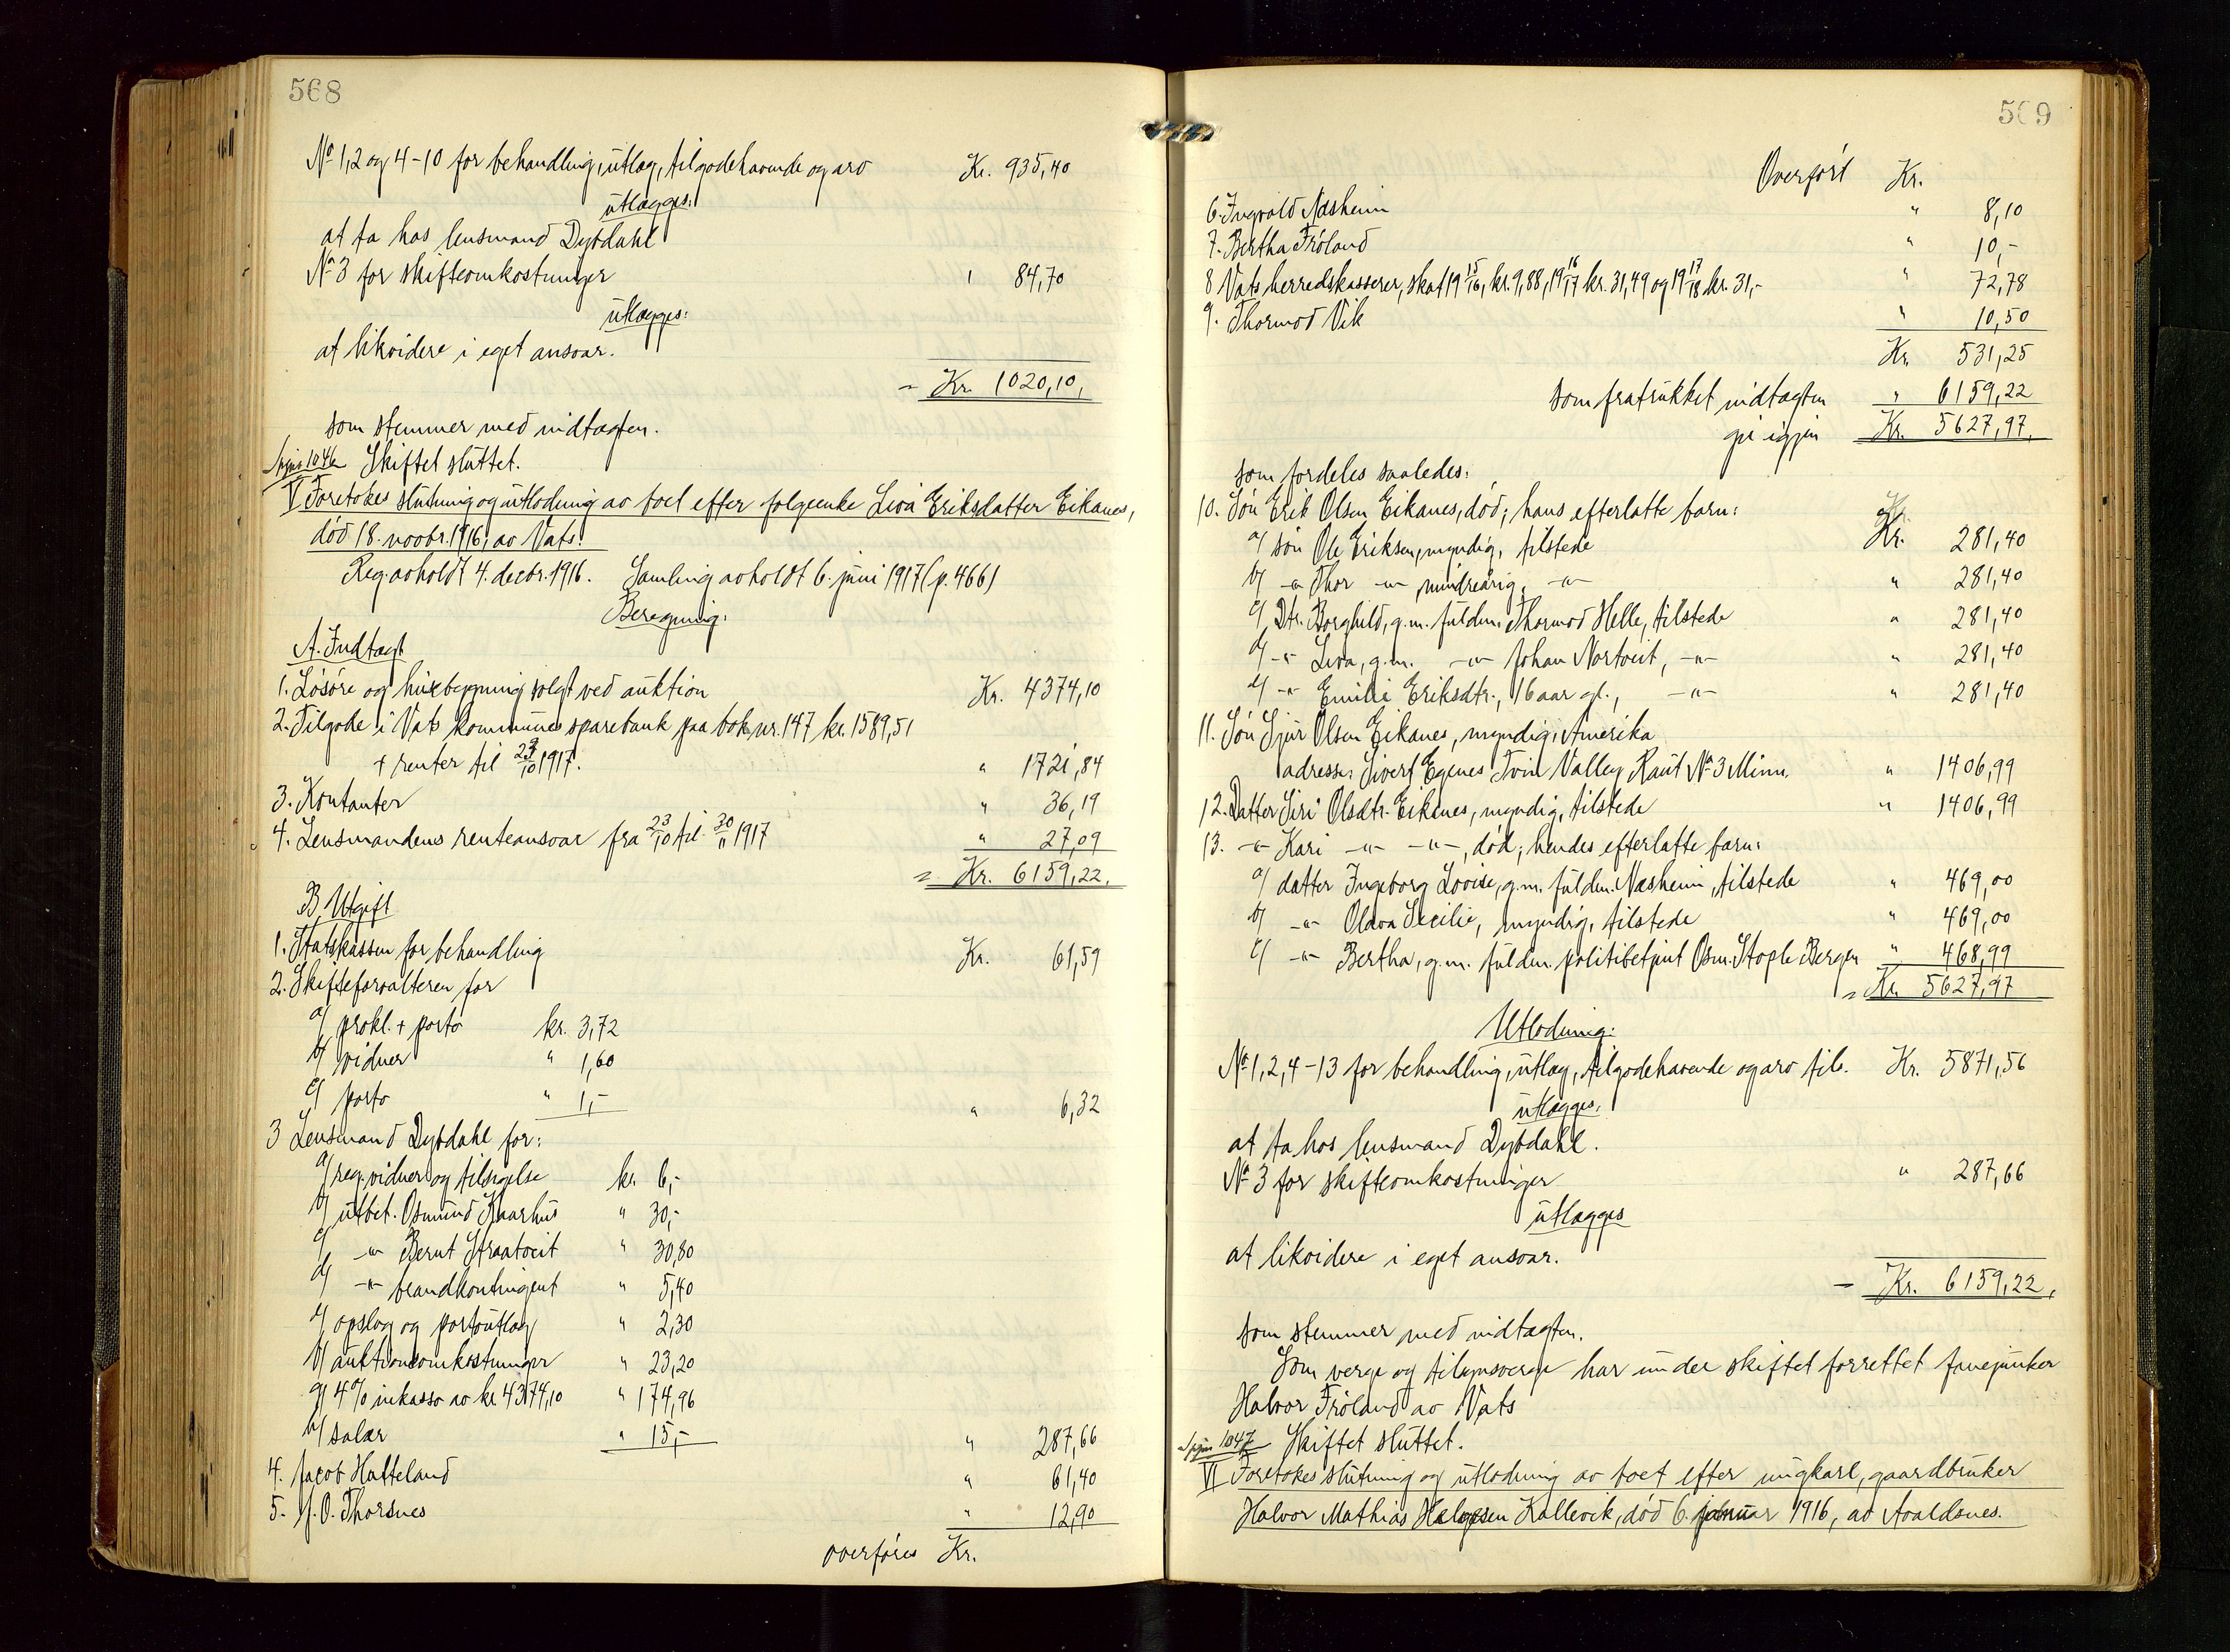 568
No 1, 2 og 4-10 for behandling, utlæg, tilgodehavende og arv Kr. 935,40
utlægges:
at ta hos lensmand Dybdahl
No 3 for skifteomkostninger " 84,70
utlægges:
at likvidere i eget ansvar.
= Kr. 1020,10,
som stemmer med indtægten.
1046 Skiftet sluttet.
V Foretokes slutning og utlodning av boet efter folgeenke Liva Eriksdatter Eikanes,
död 18. novbr. 1916, av Vats.
Reg. avholdt 4. decbr. 1916. Samling avholdt 6. juni 1917 (p. 466)
Beregning:
A. Indtægt
1. Lösöre og husbygning solgt ved auktion Kr. 4374,10
2. Tilgode i Vats kommunes sparebank paa bok nr. 147 kr. 1589,51
+ renter til 23/10 1917. " 1721,84
3. Kontanter " 36,19
4. Lensmandens renteansvar fra 23/10 til 30/11 1917 " 27,09
= Kr. 6159,22.
B. Utgift
1. Statskassen for behandling Kr. 61,59
2. Skifteforvalteren for
a/ prokl. + porto kr. 3,72
b/ vidner " 1,60
c/ porto " 1,- " 6,32
3 Lensmand Dybdahl for:
a/ reg. vidner og tilsigelse kr. 6,-
b/ utbet. Osmund Kaarhus " 30,-
c/ -"- Bernt Straatveit " 30,80
d/ -"- brandkontingent " 5,40
e/ opslag og portoutlæg " 2,30
f/ auktionsomkostninger " 23,20
g/ 4% inkasso av kr. 4374,10 " 174,96
h/ salær " 15,- " 287,66
4. Jacob Hatteland " 61,40
5. J. O. Thorsnes " 12,90
overföres Kr.
569
Overfört Kr.
6. Ingvald Næsheim " 8,10
7. Bertha Fröland " 10,-
8 Vats herredskasserer, skat 1915/16, kr. 9,88, 1916/17 kr. 31,49 og 1917/18 kr. 31,- " 72,78
9. Thormod Vik " 10,50
Kr. 531,25
som fratrukket indtægten " 6159,22
gir igjen Kr. 5627,97.
som fordeles saaledes:
10. Sön Erik Olsen Eikanes, död; hans efterlatte barn:
a/ sön Ole Eriksen, myndig, tilstede Kr. 281,40
b/ -"- Thor -"- mindreårig, -"- " 281,40
c/ Dtr. Borghild, g.m. fuldm. Thormod Helle, tilstede " 281,40
d/ -"- Liva, g.m. -"- Johan Nortveit, -"- " 281,40
e/ -"- Emilie Eriksdtr., 16 aar gl., -"- " 281,40
11. Sön Sjur Olsen Eikanes, myndig, Amerika
adresse: Sivert Egenes Tvin Valley Raut No 3 Minn. " 1406,99
12. Datter Siri Olsdtr. Eikanes, myndig, tilstede " 1406,99
13. -"- Kari -"- -"-, död; hendes efterlatte barn:
a/ datter Ingeborg Lovise, g.m. fuldm. Næsheim, tilstede " 469,00
b/ -"- Olava Secilie, myndig, tilstede " 469,00
c/ -"- Bertha, g.m. fuldm. politibetjent Osm. Stople Bergen " 468,99
= Kr. 5627,97
Utlodning:
No 1, 2, 4-13 for behandling, utlæg, tilgodehavende og arv tils. Kr. 5871,56
utlægges:
at ta hos lensmand Dybdahl.
No 3 for skifteomkostninger " 287,66
utlægges
at likvidere i eget ansvar.
= Kr. 6159,22.
som stemmer med indtægten.
Som verge og tilsynsverge har under skiftet forrettet fanejunker
Halvor Fröland av Vats
1047 Skiftet sluttet.
VI Foretokes slutning og utlodning av boet efter ungkarl, gaardbruker
Halvor Mathias Helgesen Kallevik, död 6. januar 1916, av Avaldsnes.